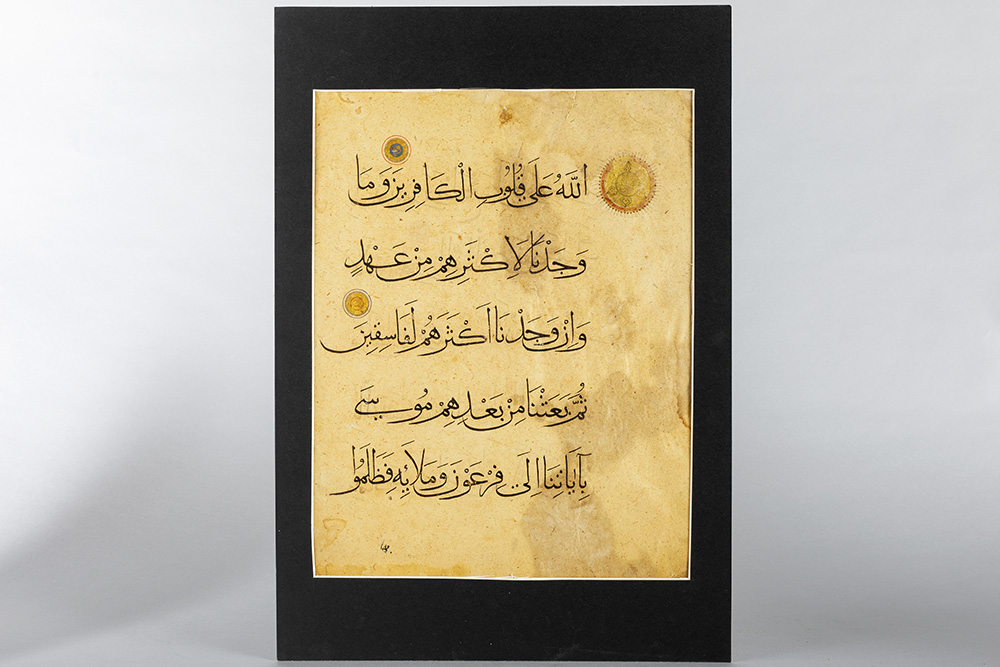 اللّٰهُ عَلَى قُلُوبِ الْكَافِرِينَ وَمَا
وَجَدْنَا لِاَكْثَرِهِمْ مِنْ عَهْدٍ
وَاِنْ وَجَدْنَا اَكْثَرَهُمْ لَفَاسِقِينَ
ثُمَّ بَعَثْنَا مِنْ بَعْدِهِمْ مُوسَى
بِآيَاتِنَا اِلَى فِرْعَوْنَ وَمَلَائِهِ فَظَلَمُوا